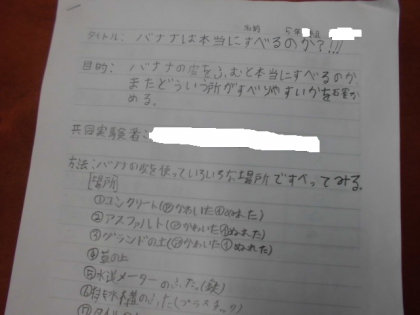 名前 5年 組
タイトル: バナナは本当にすべるのか?!!!
目的: バナナの皮をふむと本当にすべるのか、
またどういう所がすべりやすいかを確か
める。
共同実験者:
方法: バナナの皮を使っていろいろな場所ですべってみる。
[場所]
①コンクリート(㋐かわいた㋑ぬれた)
②アスファルト(㋐かわいた㋑ぬれた)
③グランドの土(㋐かわいた㋑ぬれた)
④草の上
⑤水道メーターのふた(鉄)
⑥ のふた(プラスチック)
⑦